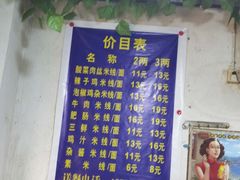 价目表
名称 2两 3两
酸菜肉丝米线/面 11元 13元
辣子鸡米线/面 11元 13元
泡椒鸡杂米线/面 13元 16元
牛肉米线/面 16元 19元
肥肠米线/面 16元 19元
三鲜米线/面 11元 13元
鸡汁米线/面 11元 13元
杂酱米线/面 11元 13元
素米线/面